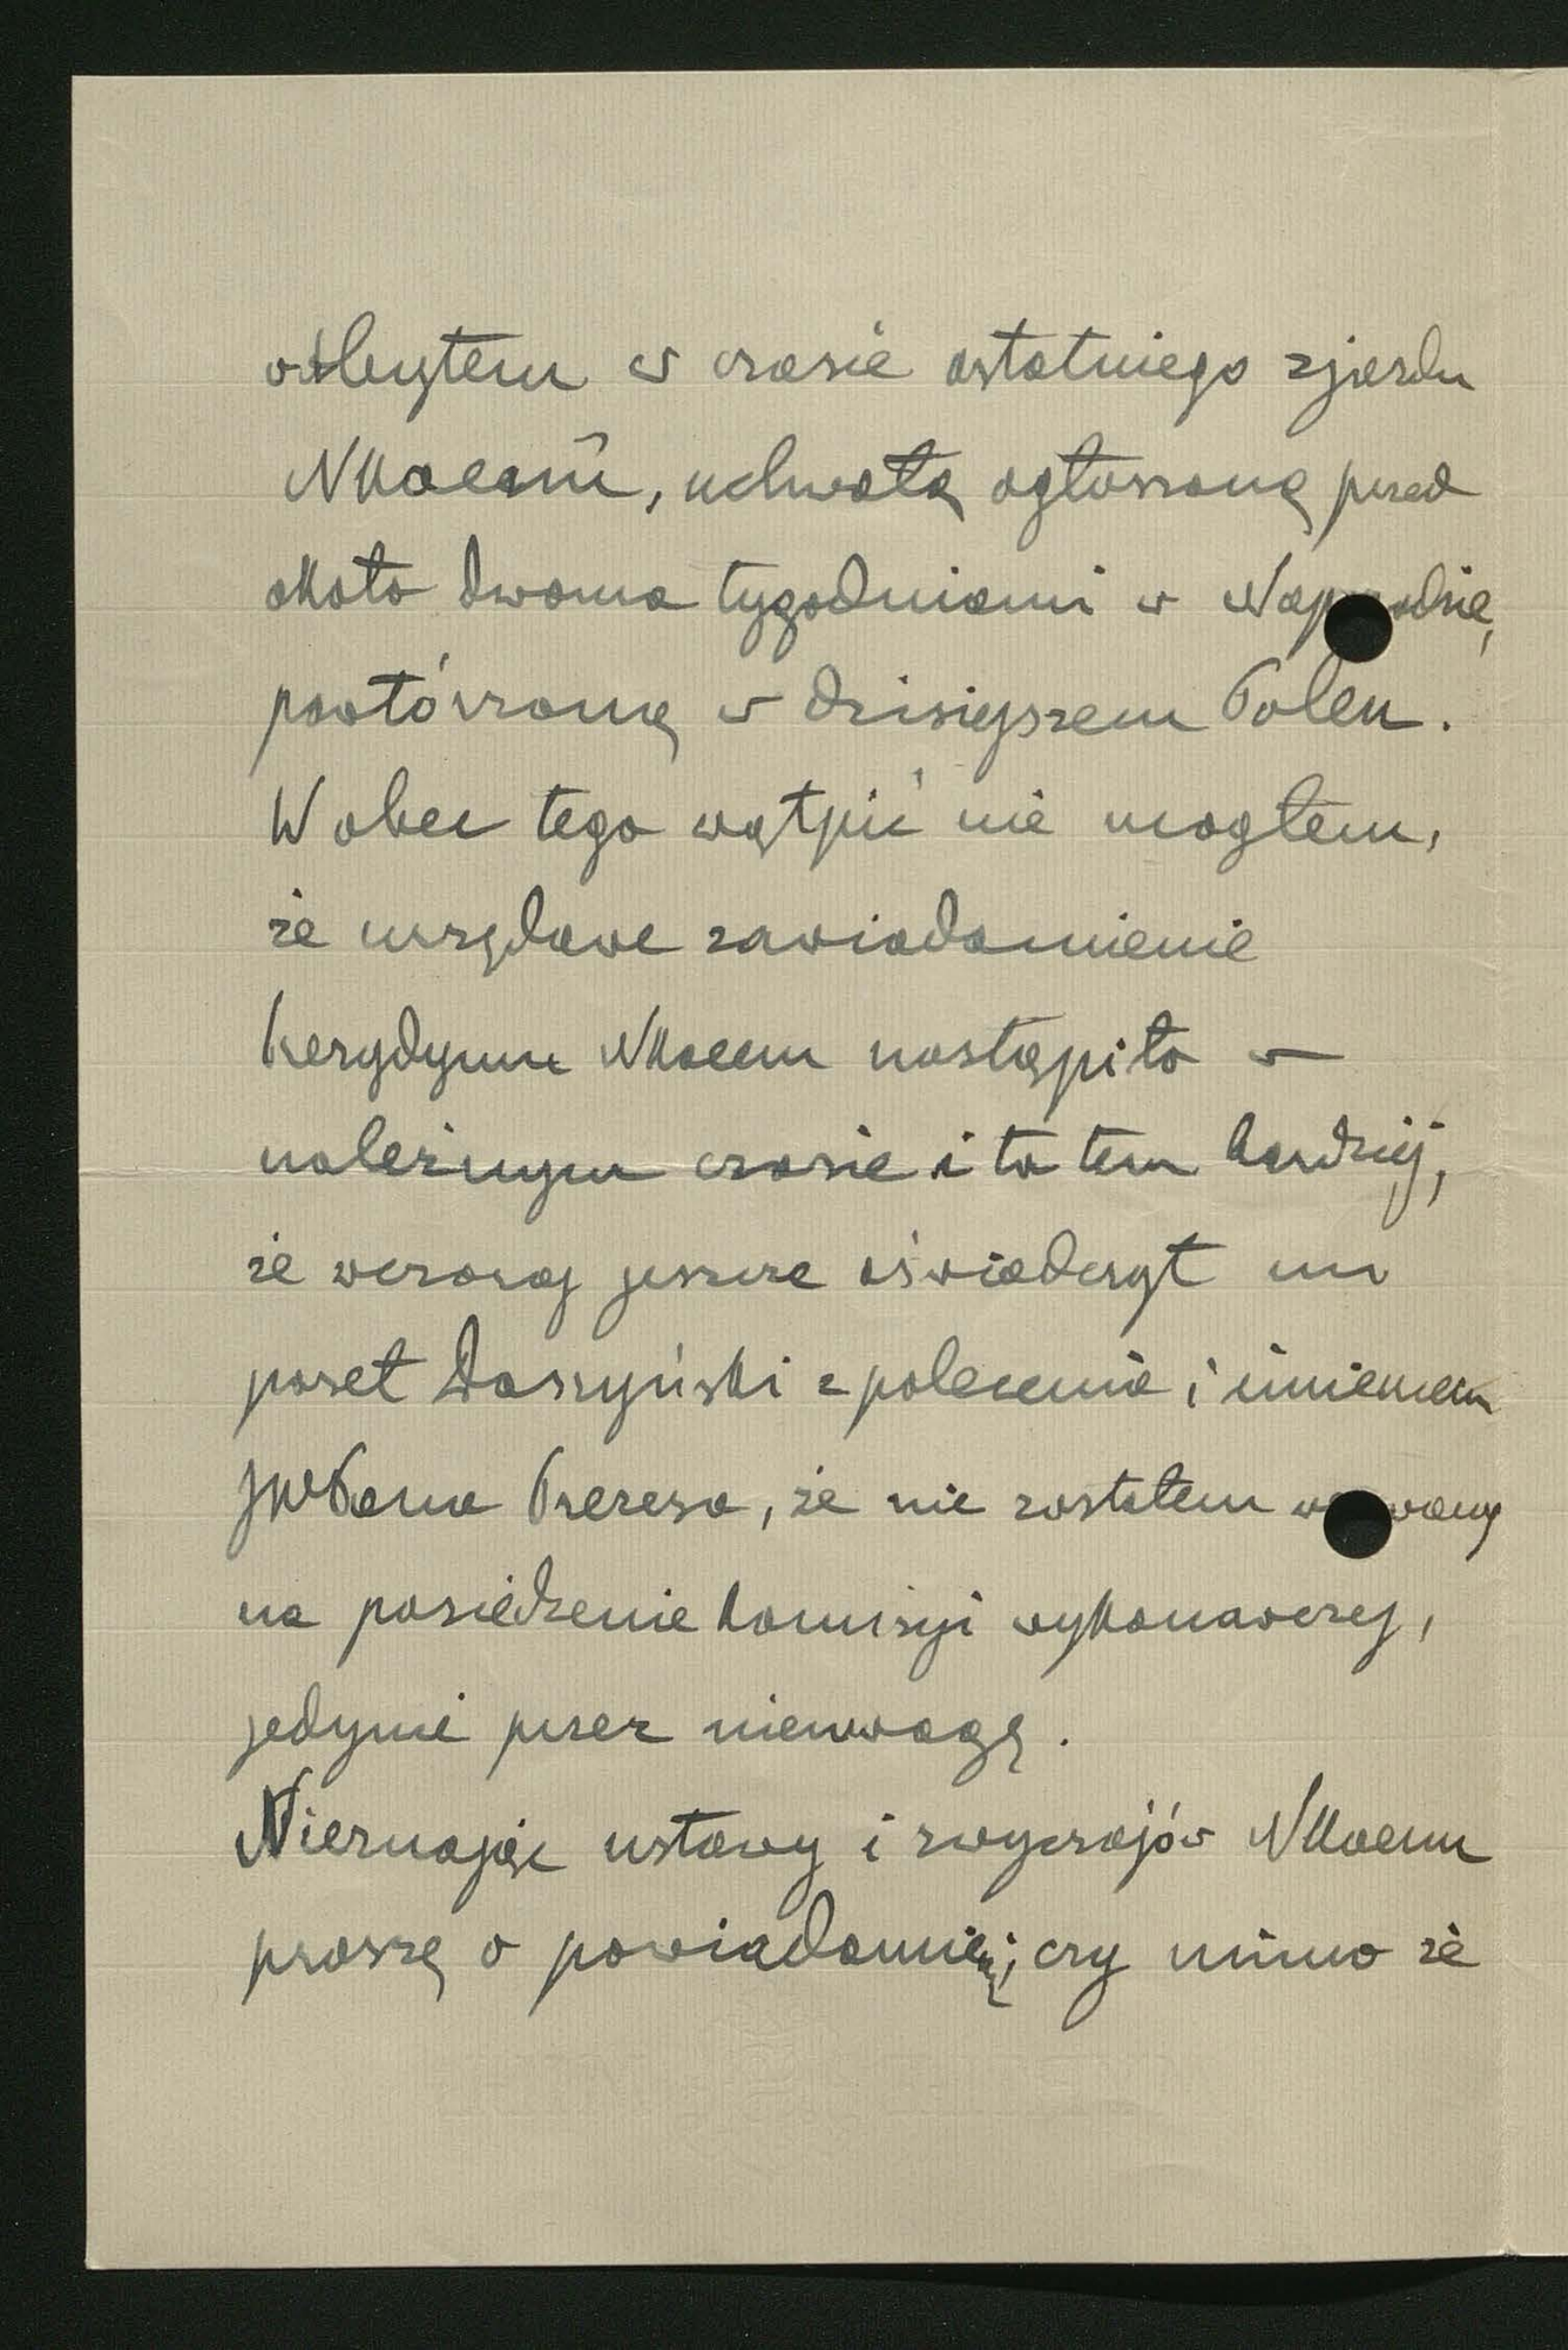 odbytem w czasie ostatniego zjazdu
NKoemu, uchwałą ogłoszoną przed
około dwoma tygodniami w Naprzodzie,
powtórzoną w dzisiejszem Polen.
Wobec tego wątpić nie mogłem,
że urzędowe zawiadomienie
Prezydyum NKoemu nastąpiło w
należnym czasie i to tem bardziej,
że wczoraj jeszcze oświadczył mi
poseł Daszyński z polecenia i imieniem
JWPana Prezesa, że nie zostałem wezwany
na posiedzenie komisyi wykonawczej,
jedynie przez nieuwagę.
Nieznając ustawy i zwyczajów NKoemu
proszę o powiadomienie, czy mimo że